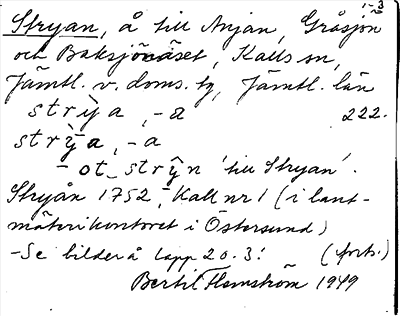 1-3
Stryan, å till Anjan, Gråsjön
och Baksjönäset, Kalls sn,
Jämtl. v. doms. tg, Jämtl. län
strỳa, -a 222.
strỳ̄a, -a
- ot strŷn 'till Stryan'.
Stryån 1752, Kall nr 1 (i lant-
mäterikontoret i Östersund)
- Se bilder å lapp 20.3! (forts.)
Bertil Flemström 1949